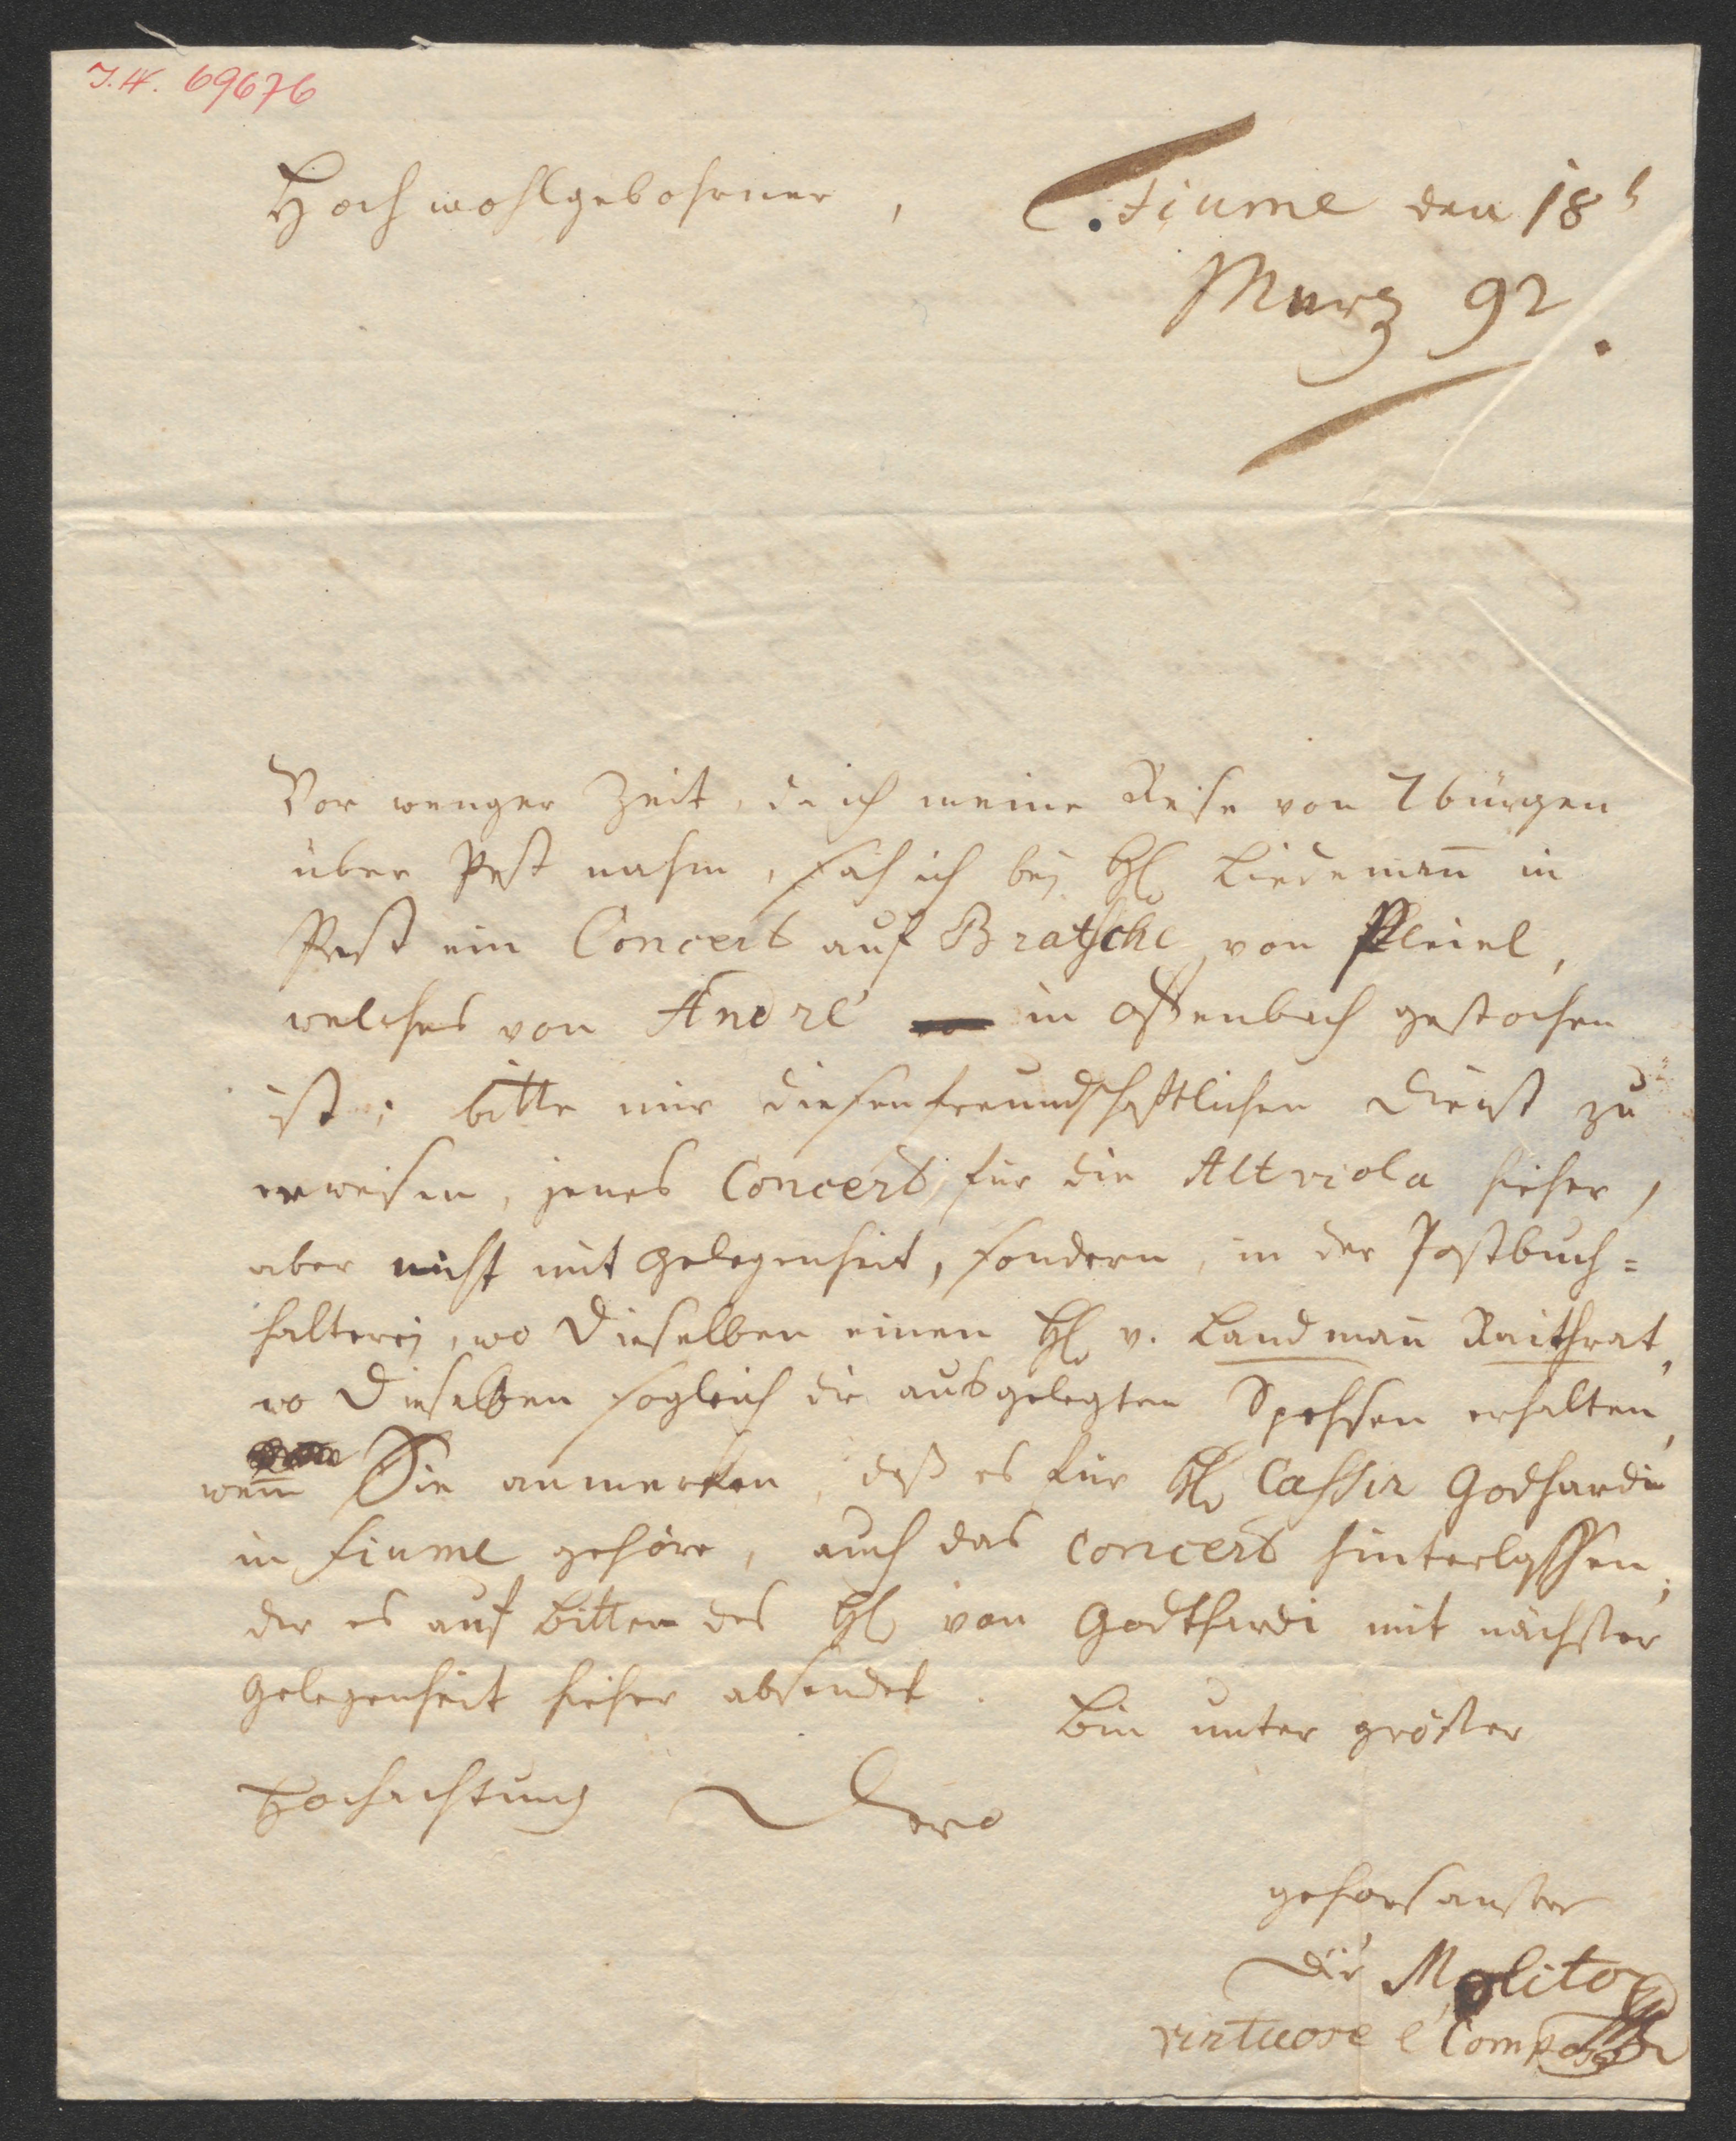 I.N. 69676
Hochwohlgebohrner,
Fiume den 18t
Marz 92.
Vor weniger Zeit, da ich meine Reise von 7bürgen
über Pest nahm, sah ich bej Hl Liedemañ in
Pest ein Concert auf Bratsche von Pleiel,
welches von André in Offenbach gestochen
ist; bitte mir diesen freundschaftlichen Dienst zu
erweisen, jenes Concert für die Altviola hieher,
aber nicht mit Gelegenheit, sondern, in der Postbuch=
halterej, wo Dieselben einen Hl v. Landmañ Raithrat,
wo Dieselben sogleich die ausgelegten Spehsen erhalten,
weñ Sie anmerken, daß es für Hl Cassir Godhardi
in Fiume gehöre, auch das Concert hinterlassen;
der es auf Bitten des Hl von Godthardi mit nächster
Gelegenheit hieher absendet. Bin unter größter
Hochachtung Dero
gehorsamster
Molitor
virtuose e Compos